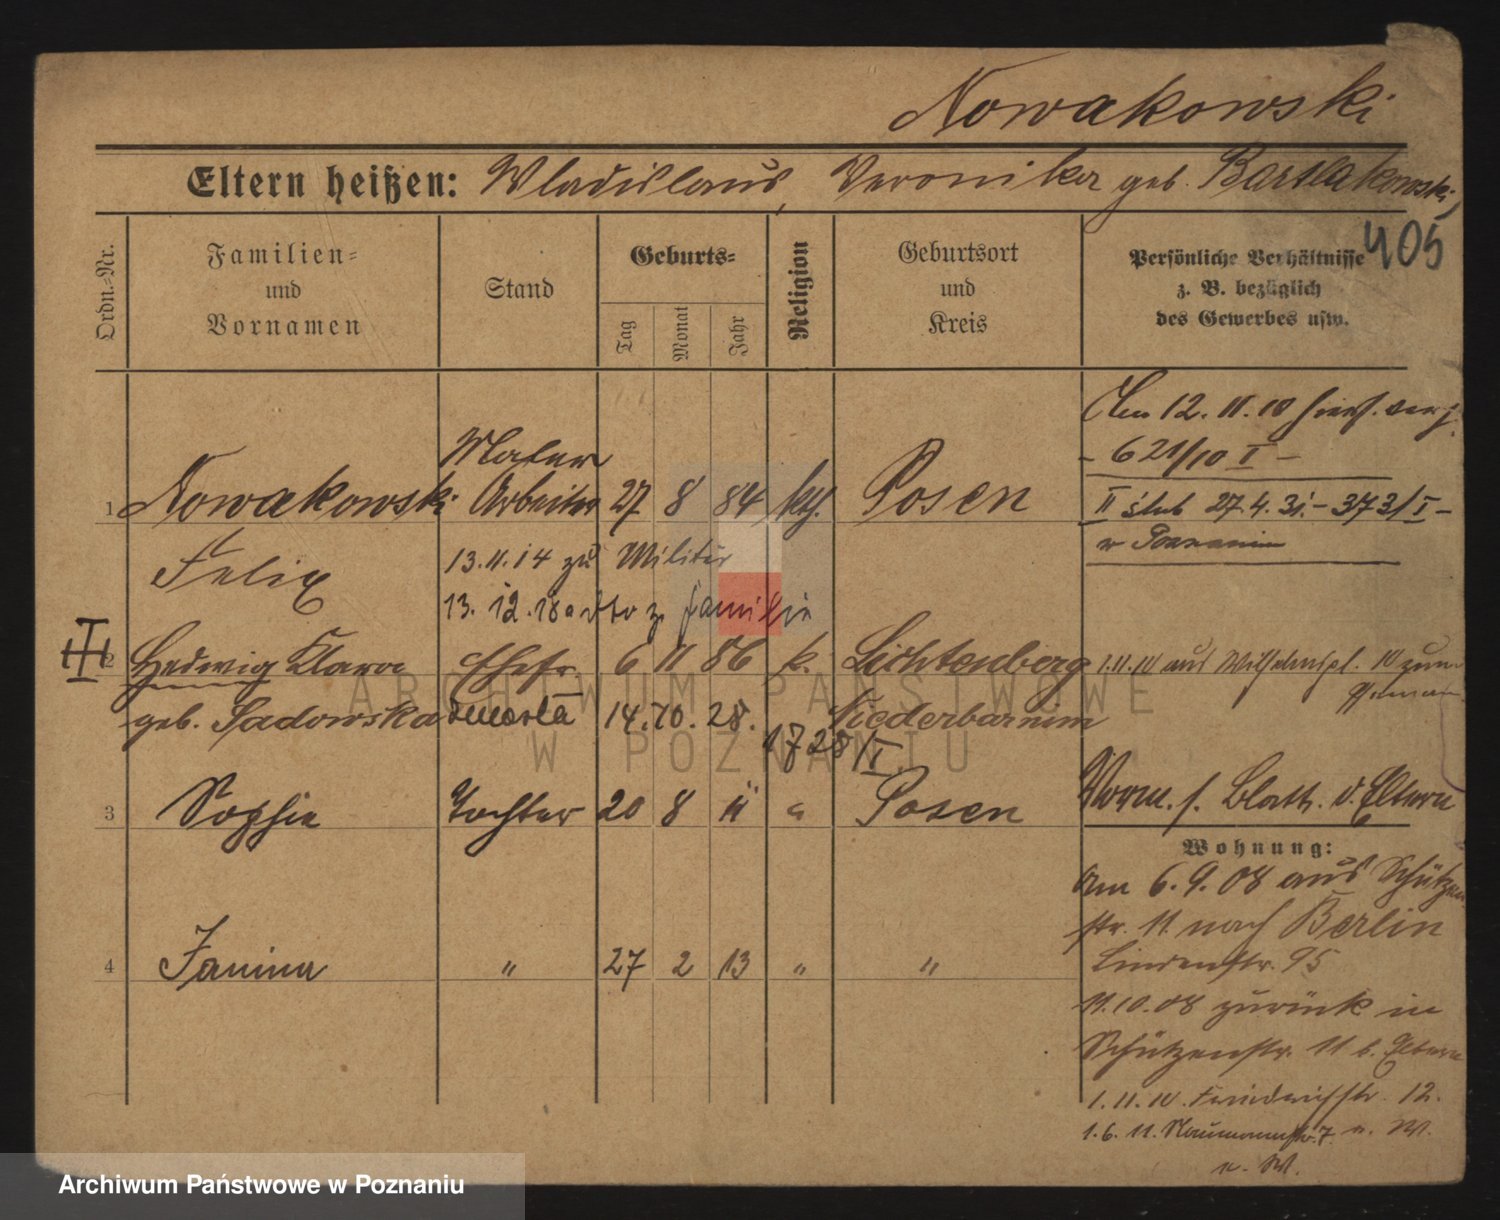 Nowakowski
Eltern heißen: Wladislaus, Veronika geb. Bartlakowski,
405
Ordn.-Nr.
Familien-
und
Vornamen
Stand
Geburts-
Tag
Monat
Jahr
Religion
Geburtsort
und
Kreis
Persönliche Verhältnisse
z. B. bezüglich
des Gewerbes usw.
Am 12.11.10 hierf. verh.
- 621/10 I -
II ślub 27.4.31. - 373/I -
w Poznaniu
1 Nowakowski Maler Arbeiter 27 8 84 kth. Posen
Felix
13.11.14 zu Militär
13.12.18 z Familie
2 Hedwig Klara Ehefr. 6 11 86 k. Lichtenberg
1.11.10 aus 10 zum
geb. Sadowska zmarła 14.10.28. Niederbarnim
1728/I
3 Sophie Tochter 20 8 11 " Posen
Vorm. s. Blatt. d. Eltern
4 Janina " 27 2 13 " "
Wohnung:
am 6.9.08 aus Schützen
str. 11 nach Berlin
Lindenstr. 95
11.10.08 zurück in
Schützenstr. 11 b. Eltern
1.11.10. Friedrichstr. 12.
1.6.11. Naumannstr. 7 n. W.
n. W.
ARCHIWUM PAŃSTWOWE
W POZNANIU
Archiwum Państwowe w Poznaniu